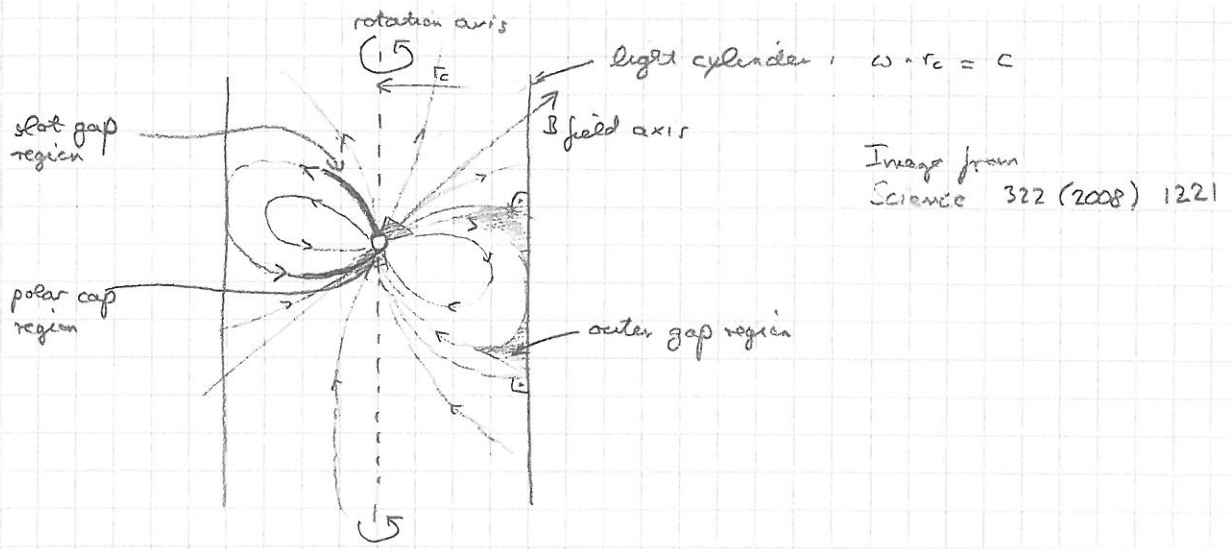 rotation axis
rc
light cylinder : ω · rc = c
B field axis
slot gap
region
Image from
Science 322 (2008) 1221
polar cap
region
outer gap region